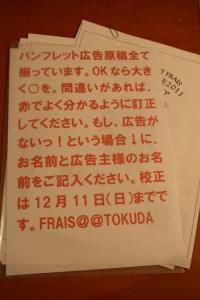 パンフレット広告原稿全て
揃っています。OKなら大き
く○を。間違いがあれば、
赤でよく分かるように訂正
してください。もし、広告
がないっ！という場合↓に、
お名前と広告主様のお名
前をご記入ください。校正
は12月11日(日)までで
す。FRAIS@@TOKUDA
T FRAIS
2011